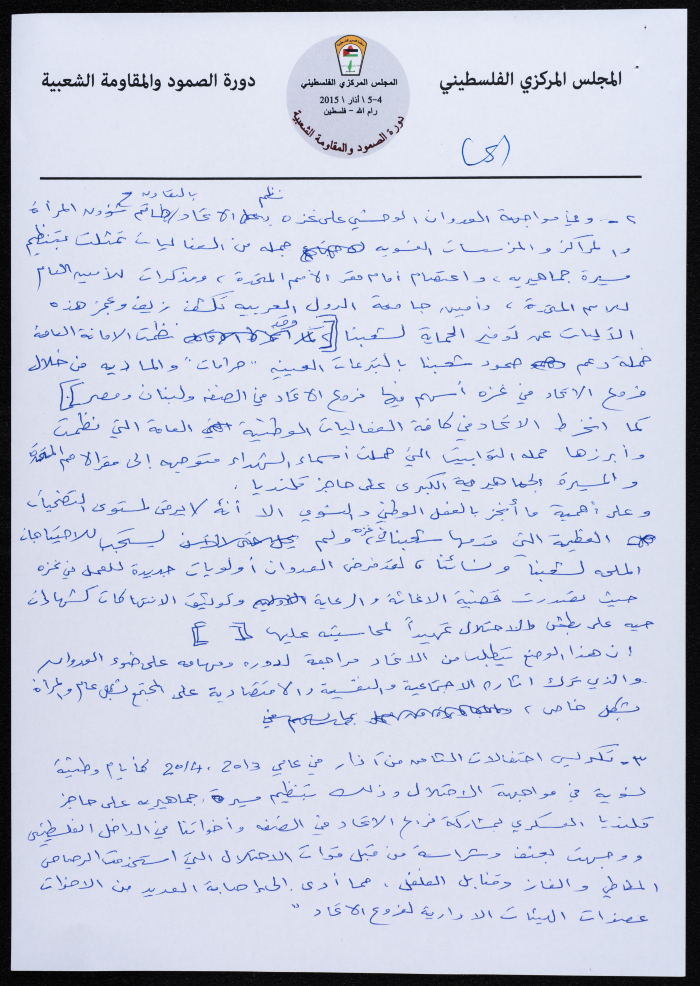 المجلس المركزي الفلسطيني
دورة الصمود والمقاومة الشعبية
المجلس المركزي الفلسطيني
4-5 \ آذار \ 2015
رام الله - فلسطين
دورة الصمود والمقاومة الشعبية
نظم بالتعاون مع
٢ - وفي مواجهة العدوان الوحشي على غزه الاتحاد / طاقم شؤون المرأة
والمراكز والمؤسسات النسويه جمله من الفعاليات تمثلت بتنظيم
مسيرة جماهيريه، واعتصام أمام مقر الأمم المتحدة، ومذكرات للأمين العام
للامم المتحدة، وأمين جامعة الدول العربيه تكشف زيف وعجز هذه
الآليات عن توفير الحماية لشعبنا [ وقد نظمت الامانة العامة
حملة دعم صمود شعبنا بالتبرعات العينيه "حرامات" والماديه من خلال
فروع الاتحاد في غزه أسهم فيها فروع الاتحاد في الضفه ولبنان ومصر ]
كما انخرط الاتحاد في كافة الفعاليات الوطنية العامة التي نظمت
وأبرزها حمله التوابيت التي حملت أسماء الشهداء متوجهه إلى مقر الامم المتحدة
والمسيرة الجماهيرية الكبرى على حاجز قلنديا.
وعلى أهمية ما أنجز بالفعل الوطني والنسوي الا أنه لا يرقى لمستوى التضحيات
العظيمة التي قدمها شعبنا في غزه ولم يستجيب للاحتياجات
الملحه لشعبنا ونسائنا، لقد فرض العدوان أولويات جديدة للعمل في غزه
حيث تصدرت قضية الاغاثة والرعاية وتوثيق الانتهاكات كشهادات
حيه على بطش الاحتلال تمهيداً لمحاسبته عليها [ ]
ان هذا الوضع يتطلب من الاتحاد مراجعة لدوره ومهامه على ضوء العدوان
والذي ترك اثاره الاجتماعية والنفسية والاقتصادية على المجتمع بشكل عام والمرأة
بشكل خاص،
٣ - تكريس احتفالات الثامن من آذار في عامي 2013، 2014 كأيام وطنية
نسوية في مواجهة الاحتلال وذلك بتنظيم مسيرة جماهيريه على حاجز
قلنديا العسكري بمشاركة فروع الاتحاد في الضفه وأخواتنا في الداخل الفلسطيني
ووجهت بعنف وشراسة من قبل قوات الاحتلال التي استخدمت الرصاص
المطاطي والغاز وقنابل الفلفل، مما أدى إلى إصابة العديد من الاخوات
عضوات الهيئات الادارية لفروع الاتحاد "